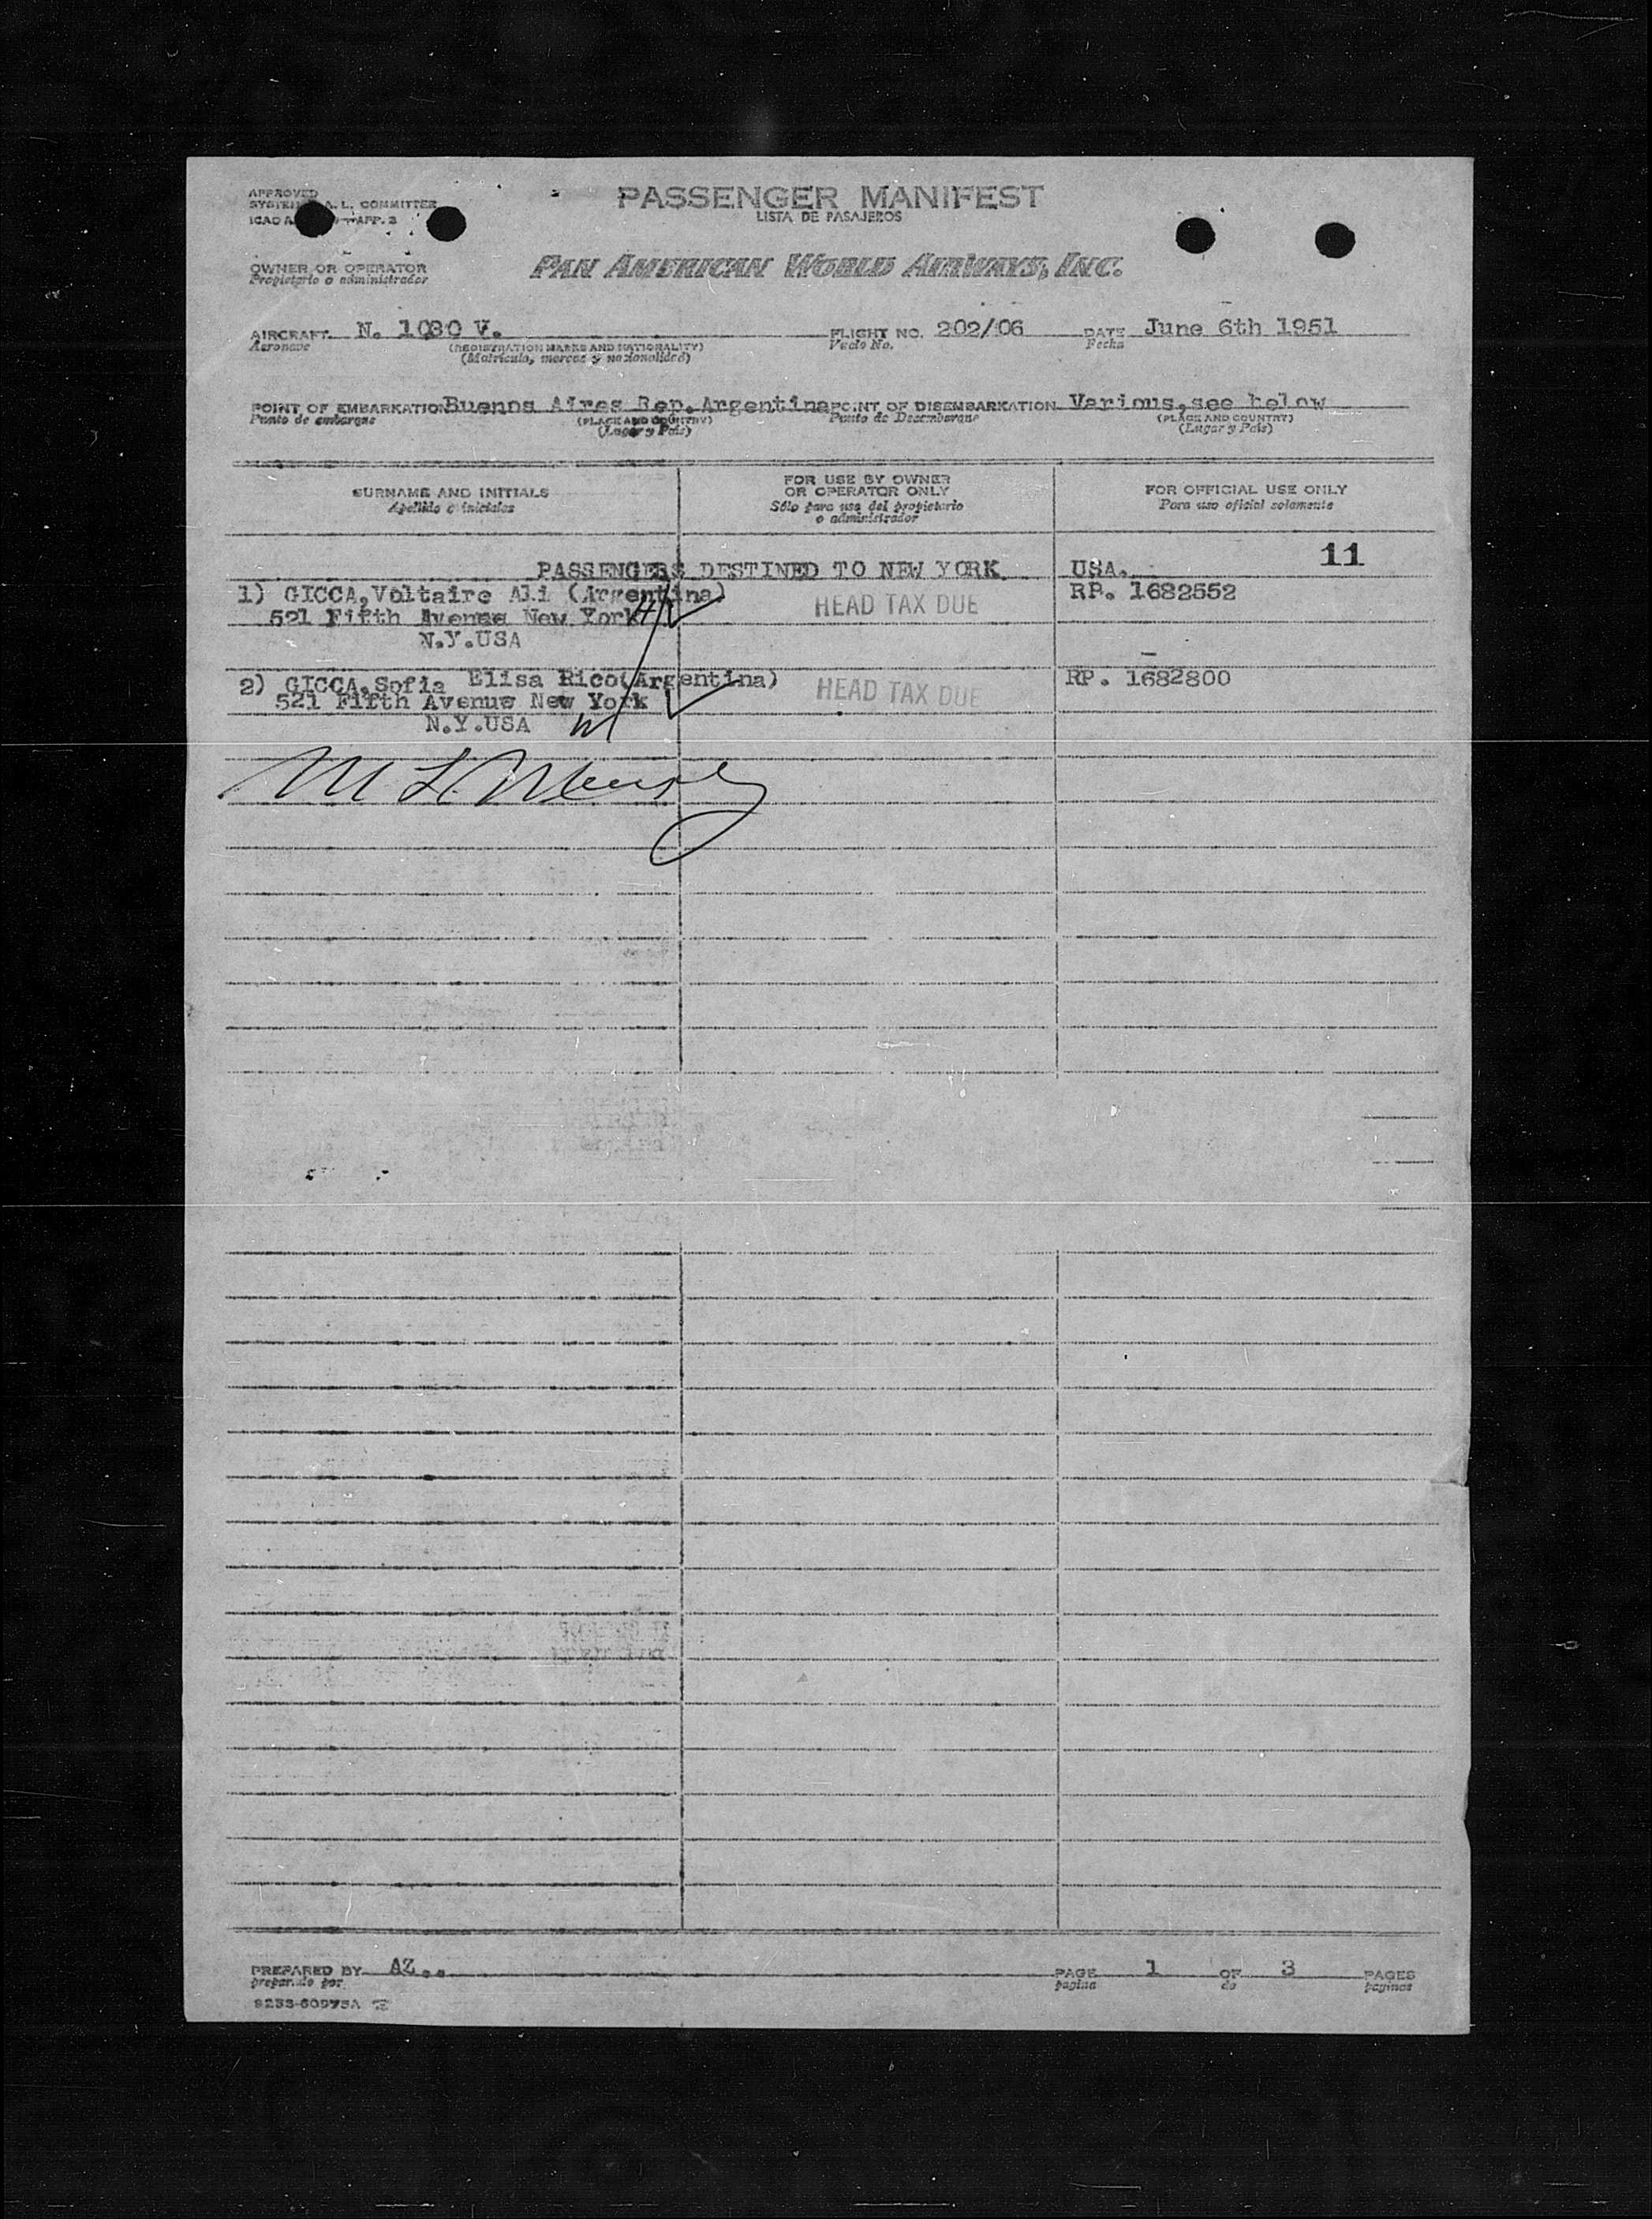 APPROVED
PASSENGER MANIFEST
SYSTEM A. L. COMMITTEE
LISTA DE PASAJEROS
ICAO APP. 3
OWNER OR OPERATOR
Propietario o administrador
PAN AMERICAN WORLD AIRWAYS, INC.
AIRCRAFT N. 1030 V. FLIGHT NO. 202/06 DATE June 6th 1951
Aeronave (REGISTRATION MARKS AND NATIONALITY) Vuelo No. Fecha
(Matrícula, marcas y nacionalidad)
POINT OF EMBARKATION Buenos Aires Rep. Argentina POINT OF DISEMBARKATION Various, see below
Punto de embarque (PLACE AND COUNTRY) Punto de Desembarque (PLACE AND COUNTRY)
(Lugar y País) (Lugar y País)
SURNAME AND INITIALS
Apellido e iniciales
FOR USE BY OWNER
OR OPERATOR ONLY
Sólo para uso del propietario
o administrador
FOR OFFICIAL USE ONLY
Para uso oficial solamente
PASSENGERS DESTINED TO NEW YORK USA. 11
1) GICCA, Voltaire Ali (Argentina) HEAD TAX DUE RP. 1682552
521 Fifth Avenue New York
N.Y.USA
2) GICCA, Sofia Elisa Rico(Argentina) HEAD TAX DUE RP. 1682800
521 Fifth Avenue New York
N.Y.USA
PREPARED BY AZ.. PAGE 1 OF 3 PAGES
preparado por pagina de paginas